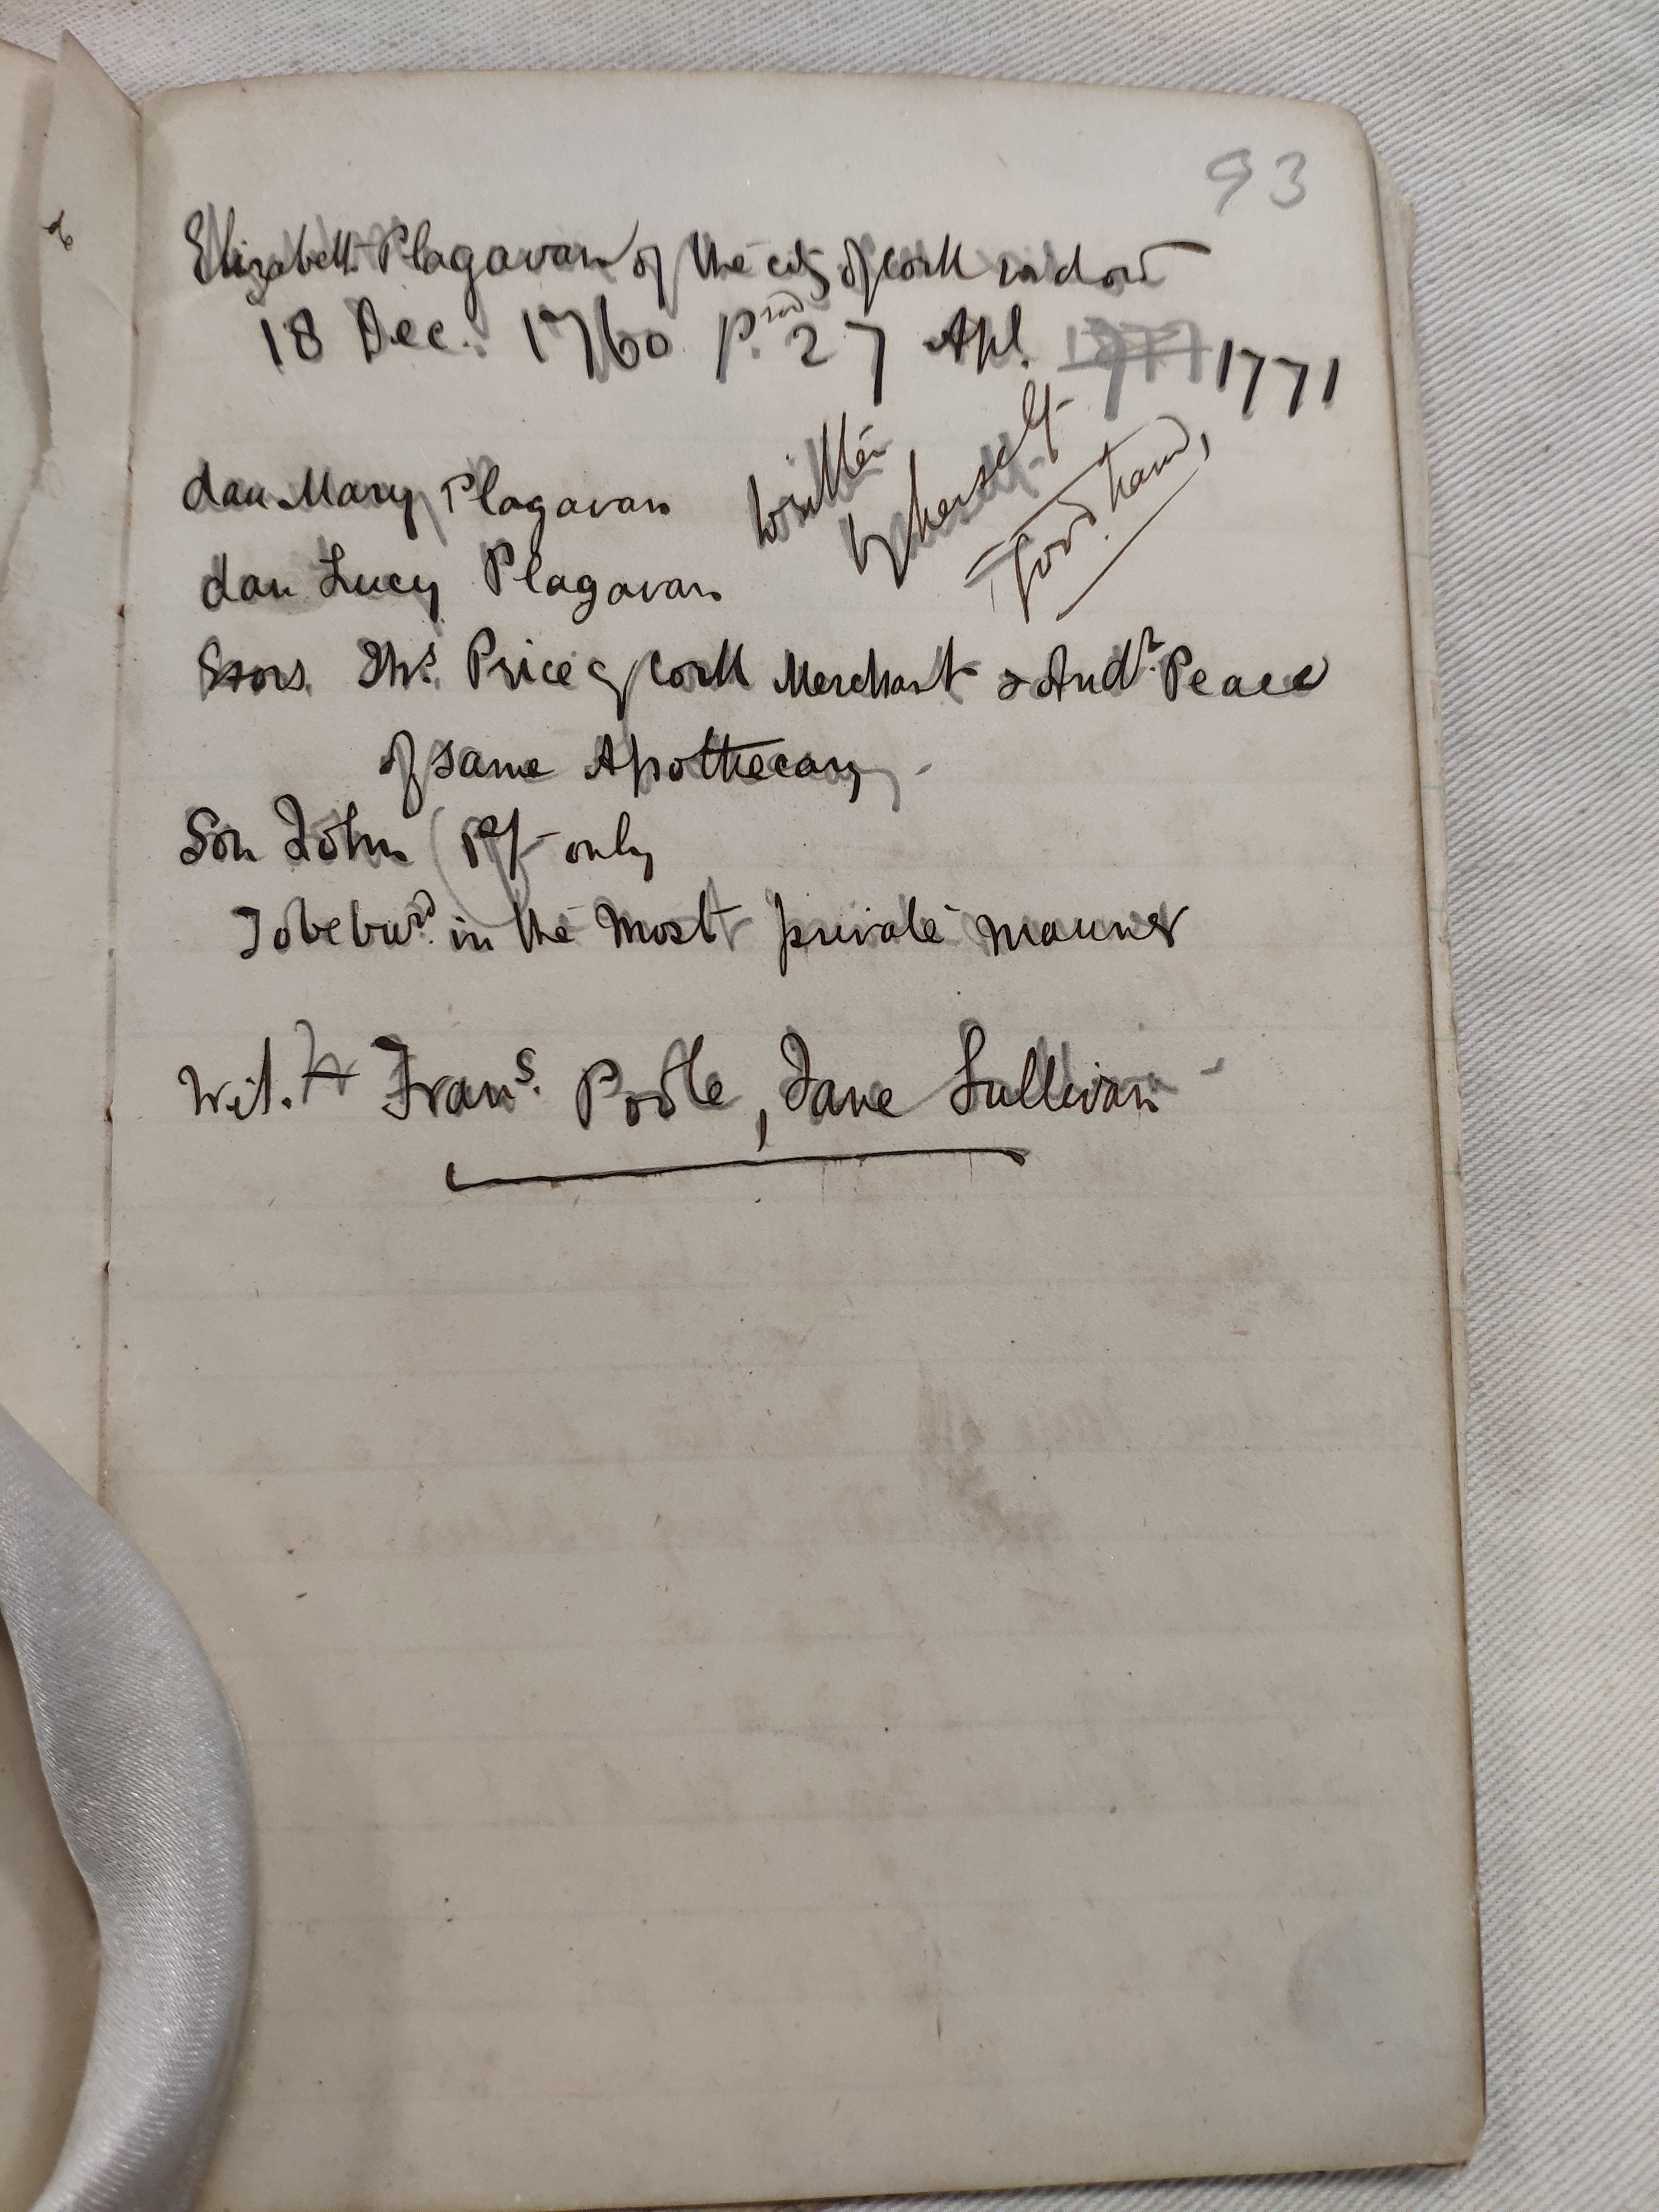 93
Elizabeth Plagavan of the city of Cork widow
18 Dec. 1760 p.red 27 Apl. 1771 1771
dau Mary Plagavan
written
by herself
Good hand,
dau Lucy Plagavan
Exors. Ths. Price of Cork Merchant & Andr. Peace
of same Apothecary
Son John (1s/- only
To be burd. in the most private manner
Wit. Frans. Poole, Jane Sullivan